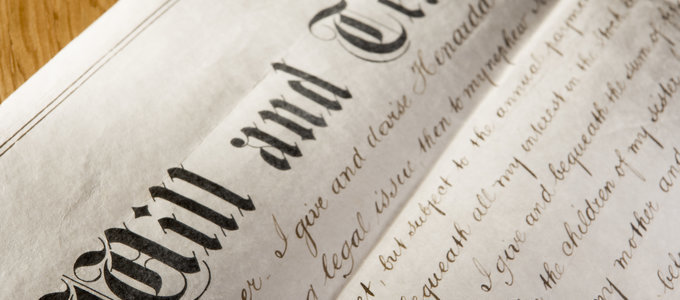 Will and Te
I give and devise Honaida
legal issue then to my nephew
but subject to the annual payment
bequeath all my interest in the stock
I give and bequeath the sum of
the children of my sister
my mother and